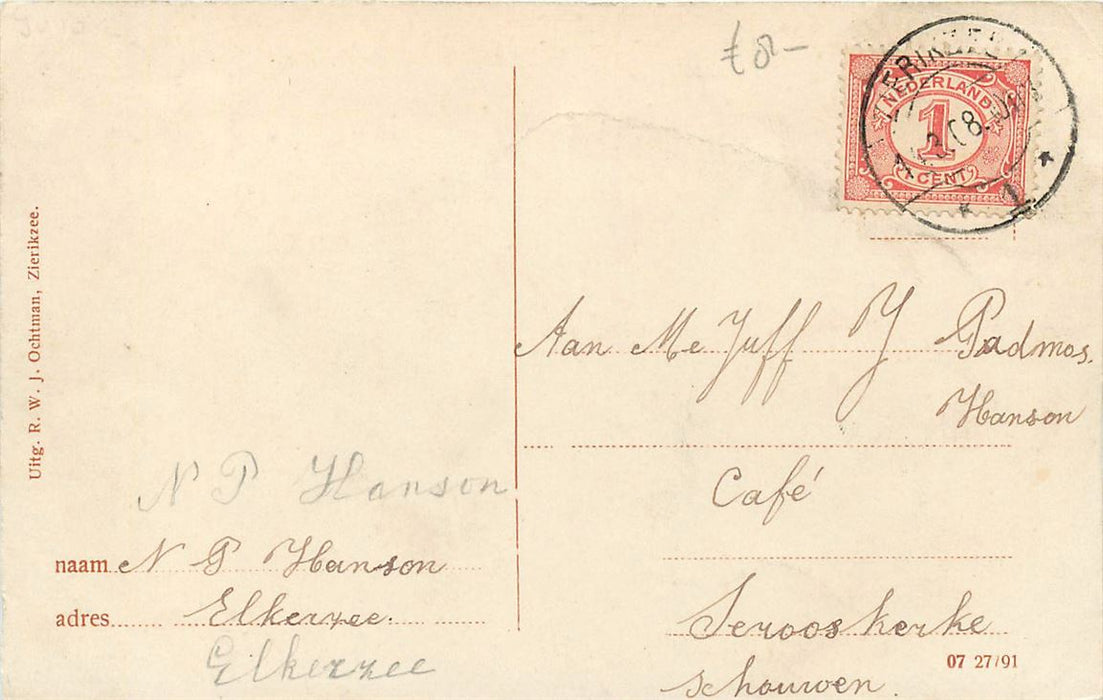 € 8-
ZIERIKZEE
NEDERLAND
1
CENT
1
Uitg. R. W. J. Ochtman, Zierikzee.
Aan MeJuff J Padmos.
Hanson
Café
Serooskerke
schouwen.
N P Hanson
naam N P Hanson
adres Elkerzee.
Elkerzee
07 27/91